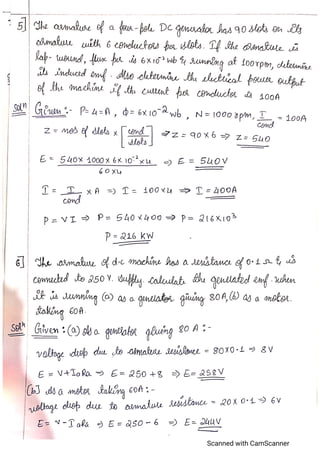 5] The armature of a four-pole DC generator has 90 slots on its
armature with 6 conductors per slots. If the armature is
lap-wound, flux per is 6×10⁻² wb & running at 1000rpm, determine
its induced emf. Also determine the electrical power output
of the machine if the current per conductor is 100A
Solⁿ Given:- P=4=A, ϕ=6×10⁻² wb, N=1000 rpm, I/cond = 100A
Z = no's of slots × [cond/slots] ⇒ Z = 90×6 ⇒ Z = 540
E = 540×1000×6×10⁻²×4 / 60×4 ⇒ E = 540V
I = I/cond × A ⇒ I = 100×4 ⇒ I = 400A
P = VI ⇒ P = 540×400 ⇒ P = 216×10³
P = 216 KW
6] The armature of d-c machine has a resistance of 0.1 Ω & is
connected to 250 V. supply. calculate the generated emf. when
it is running (a) as a generator giving 80A, (b) as a motor.
taking 60A.
Solⁿ Given: (a) As a generator giving 80 A:-
voltage drop due to armature resistance = 80×0.1 ⇒ 8V
E = V+IaRa ⇒ E = 250+8 ⇒ E = 258V
(b) As a motor taking 60A:-
voltage drop due to armature resistance = 20×0.1 ⇒ 6V
E = V-IaRa ⇒ E = 250-6 ⇒ E = 244V
Scanned with CamScanner